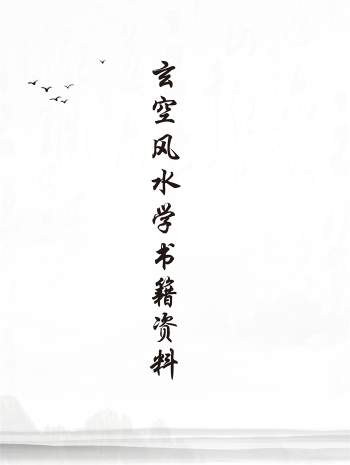 玄空风水学书籍资料